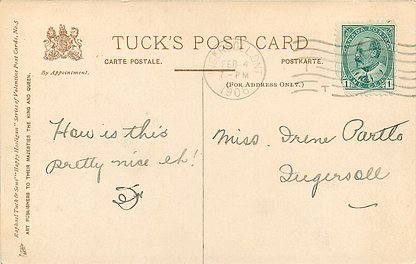 TUCK'S POST CARD
CARTE POSTALE.
POSTKARTE.
(FOR ADDRESS ONLY.)
By Appointment.
Raphael Tuck & Sons' "Happy Hooligan" Series of Valentine Post Cards, No. 5
ART PUBLISHERS TO THEIR MAJESTIES THE KING AND QUEEN.
FEB 4
PM
1906
CANADA POSTAGE
1 1
How is this
pretty nice eh!
Miss. Irene
Ingersoll